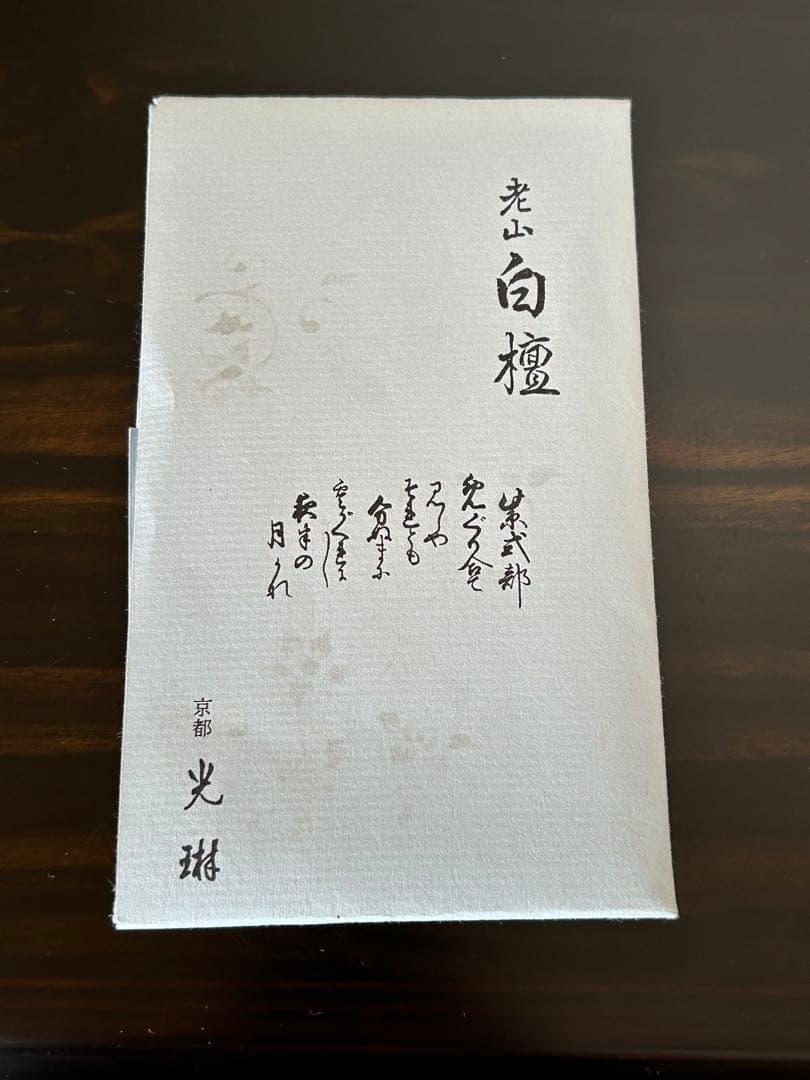 老山
白檀
紫式部
めぐり合て
見しや
それとも
分ぬまに
雲がくれにし
夜半の
月かな
京都
光琳